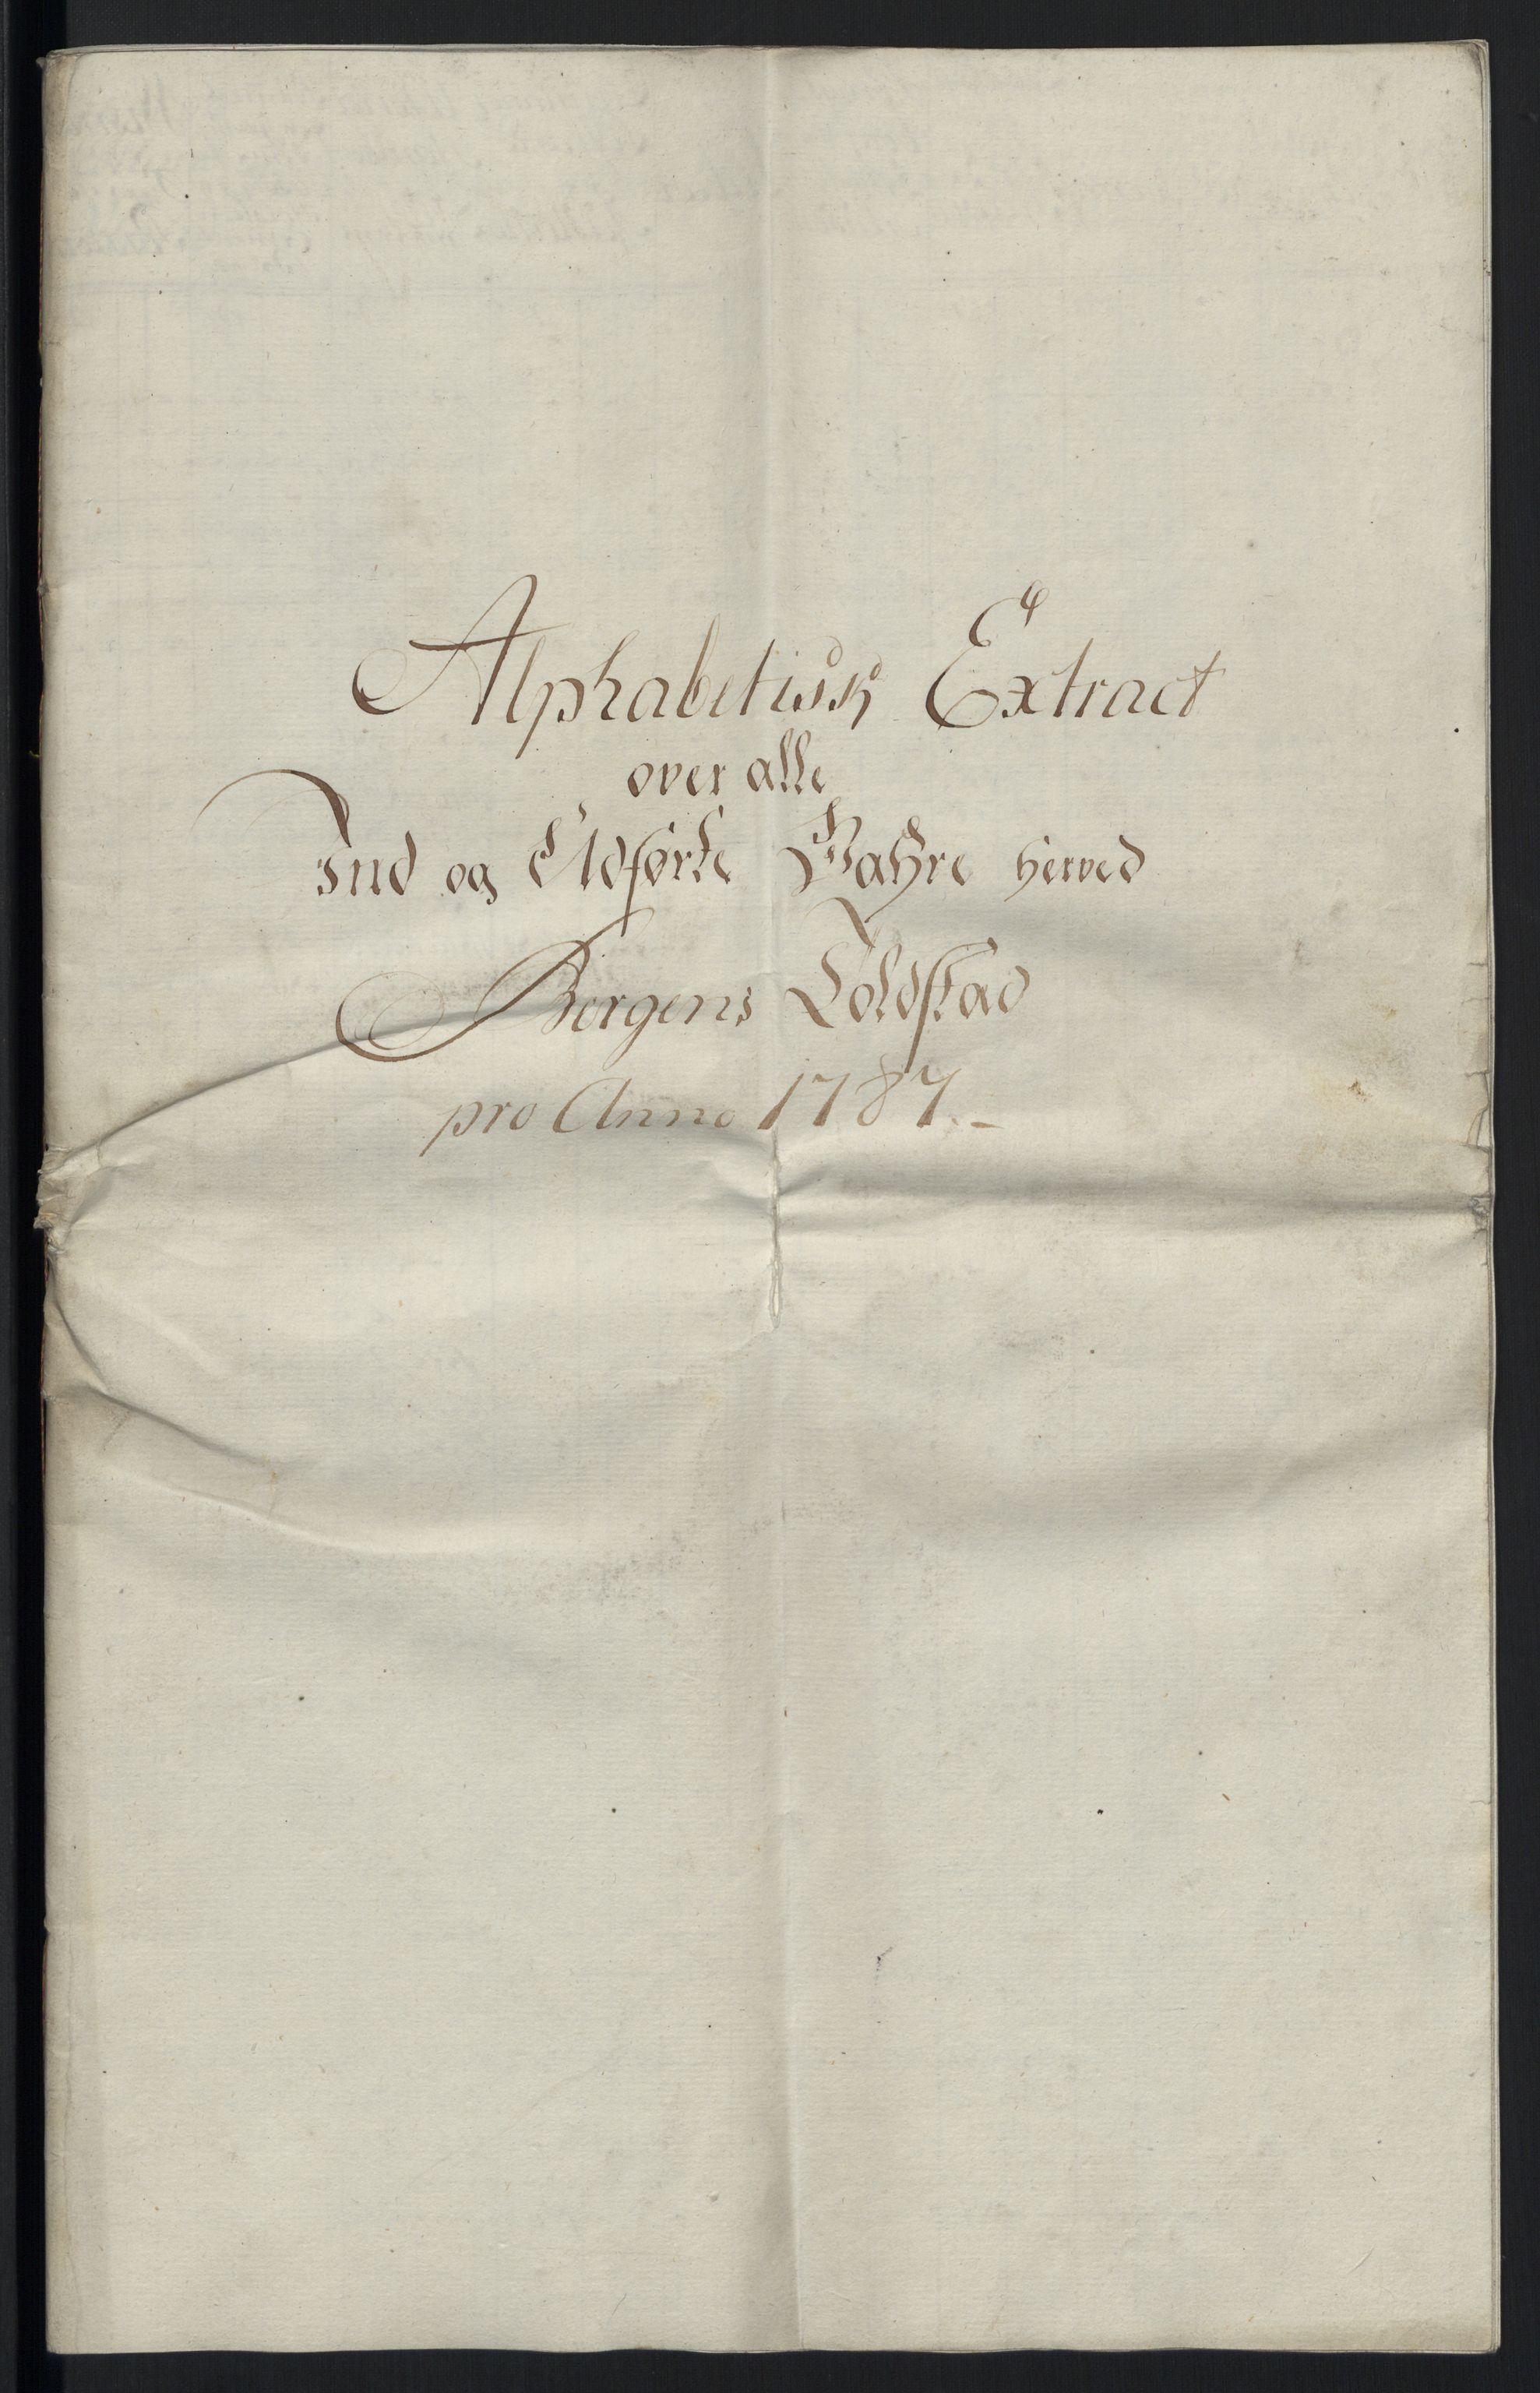 Alphabetisk Extract
over alle
Ind og Udførte Wahre herved
Bergens Toldstad
pro Anno 1787.-